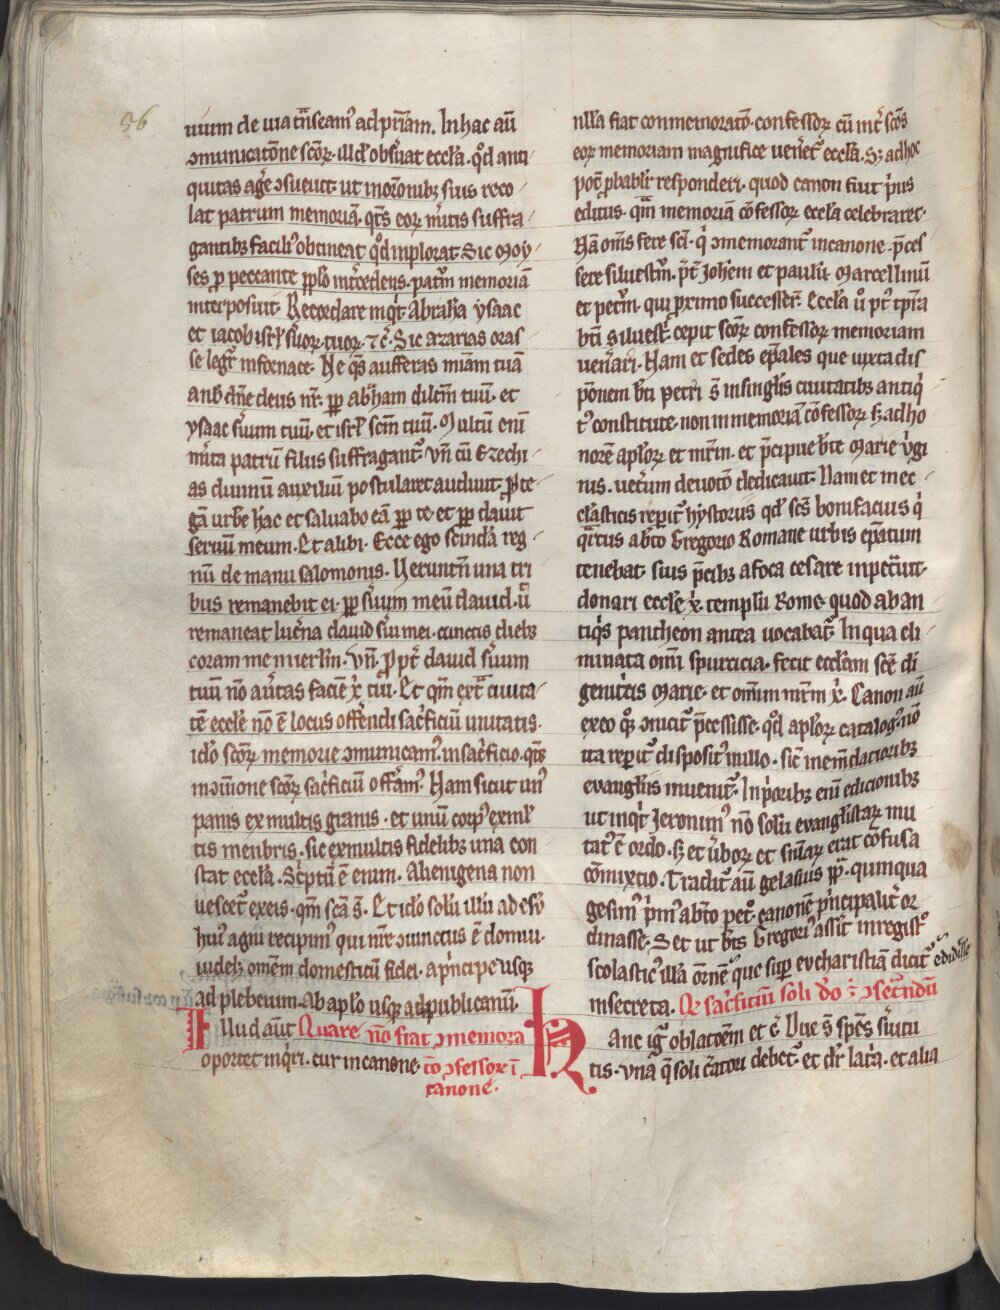 56
uium de uia tnseam⁹ ad pr̄iam. In hac aū
ↄmunicatōne scōꝝ. illd̓ obs̓uat eccl̓a. qd̓ anti
quitas ag̓e ↄsueuit. ut in or̄onibꝫ suis reco
lat patrum memoriā. qt̄s eoꝝ m̓itis suffra
gantibꝫ facili⁹ obtineat qd̓ inplorat. Sic Moy
ses p peccante pp̄lo int̓cedens. patm̄ memoriā
interposuit. Recordare inqt̓ Abrahā ysaac
et iacob isrl̓ s̓uoꝝ tuoꝝ. ⁊ c̄. Sic azarias oras
se legit̓ in fornace. Ne qs̄ aufferas mīam tuā
a nob̓ dn̄e deus nr̄. pp̄ ab̓ham dilcm̄ tuū. et
ysaac s̓uum tuū. et isrl̓ scm̄ tuū. Multū enī
m̓ita patrū filiis suffragant̄. vn̄ cū Ezechi
as diuinū auxiliū postularet audiuit. Prote
gā urbē hac et saluabo eā pp̄ te. et pp̄ dauit
seruū meum. Et alibi. Ecce ego scindā reg
nū de manu salomonis. Ueruntn̄ una tri
bus remanebit ei. pp̄ s̓uum meū dauid. ut
remaneat luc̓na dauid s̓ui mei. cunctis diebꝫ
coram me in ierl̓m. vn̄. Propt̓ dauid s̓uum
tuū nō au̓tas faciē x̄ tui. Et qm̄ ext̄ ciuita
tē eccl̓e nō ē locus offerendi sac̓ficiū unitatis.
id̓o scōꝝ memorie ↄmunicam⁹ in sac̓ficio. qt̄s
in ↄmūione scōꝝ sac̓ficiū offeram⁹. Nam sicut un⁹
panis ex multis granis. et unū corp⁹ ex ml̓
tis menbris. sic ex multis fidelibꝫ una con
stat eccl̓a. Sc̓ptū ē enim. Alienigena non
uescet̄ ex eis. qm̄ scā s̄. Et id̓o solū illū ad esū
hui⁹ agni recipim⁹ qui nr̄e ↄiunctus ē domui.
uidelꝫ omēm domesticū fidei. a p̓ncipe usqꝫ
ad plebeium. ab ap̄lo usqꝫ ad publicanū.
Illud aūt Quare nō fiat ↄmemora
oportet inqri. cur in canone tō ↄfessoꝝ ī
canone.
nll̓a fiat conmemoratō. confessoꝝ cū int̓ scōs
eoꝝ memoriam magnifice uen̓et̄ eccl̓a. Sꝫ ad hoc
pot̄ pbabilr̄ responderi. quod canon fiuit p̓us
editus. qm̄ memoriā cōfessoꝝ eccl̓a celebraret.
Nā om̄s fere scī. q̓ ↄmemorant̄ in canone. p̄ces
sere siluestrū. p̄t Joh̄em et paulū. Marcellinū
et petrū. qui pximo successer̄. Eccl̓a u̓ pt̓ tp̄ra
bt̄i siluest̓. cepit scōꝝ confessoꝝ memoriam
uen̓ari. Nam et sedes ep̄ales que iuxta dis
pōnem bt̄i petri s̄ in singl̓is ciuitatibꝫ antiq̓
t⁹ constitute. non in memoriā cōfessoꝝ sꝫ ad ho
norē ap̄loꝝ et mr̄m. et p̄cipue bt̄e Marie u̓gi
nis. uet̓um deuotō dedicauit. Nam et in ec
cl̓asticis rep̓it̄ hystoriis qd̓ scs̄ bonifacius q̓
qr̄tus ab b̄to Gregorio Romane urbis ep̄atum
tenebat. suis p̄cibꝫ a foca cesare inpet̓uit.
donari eccl̓e x̄. templū Rome. quod ab an
tiqs̄ pantheon antea uocabat̄. In qua eli
minata om̄i spurcicia. fecit eccl̓am scē di
genit̓cis Marie. et omīum mr̄m x̄. Canon aū
ex eo qoꝫ ↄuicit̄ p̄cessisse. qd̓ ap̄loꝝ catalog⁹ nō
ita rep̓it̄ disposit⁹ in illo. sic̄ in emēdatioribꝫ
evangl̓iis inuenit̄. In p̓oribꝫ enī edicionibꝫ
ut inqt̓ Jeronim⁹ nō solū evangl̓istaꝝ mu
tat⁹ ē ordo. sꝫ et u̓boꝝ et sn̄iaꝝ erat cōfusa
cōmixtio. Tradit̄ aū gelasius pp̄. quinqua
gesim⁹ p̓m⁹ ab b̄to pet̓o. canonē p̓ncipalit̓ or
dinasse. Set ut b̄ts Gregori⁹ assit̓ in regist̓o
scolastic⁹ illā or̄onē que sup evcharistiā dicit̄ edidisse
in secreta. Qr sac̓ficiū soli dō s̄t ↄsec̓ndū
Hanc igr̓ oblatōem et c̄. Due s̄ sp̄es s̓uitu
tis. vna q̄ soli c̓atori debet̄. et dr̄ lat̓a. et alia